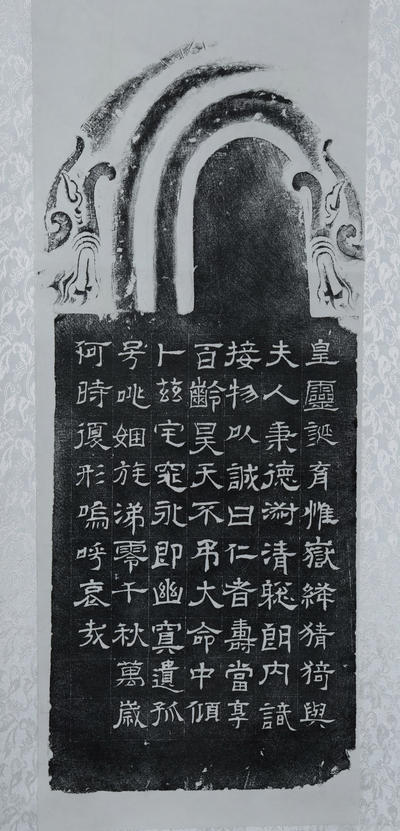 皇靈誕育惟嶽絳精猗與
夫人秉德淑清聰朗內識
接物以誠曰仁者壽當享
百齡昊天不弔大命中傾
卜茲宅窆永即幽冥遺孤
号咷姻族涕零千秋萬歲
何時復形嗚呼哀哉